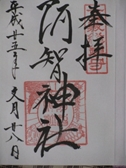 奉拝
阿智神社
平成廿五年
文月廿八日